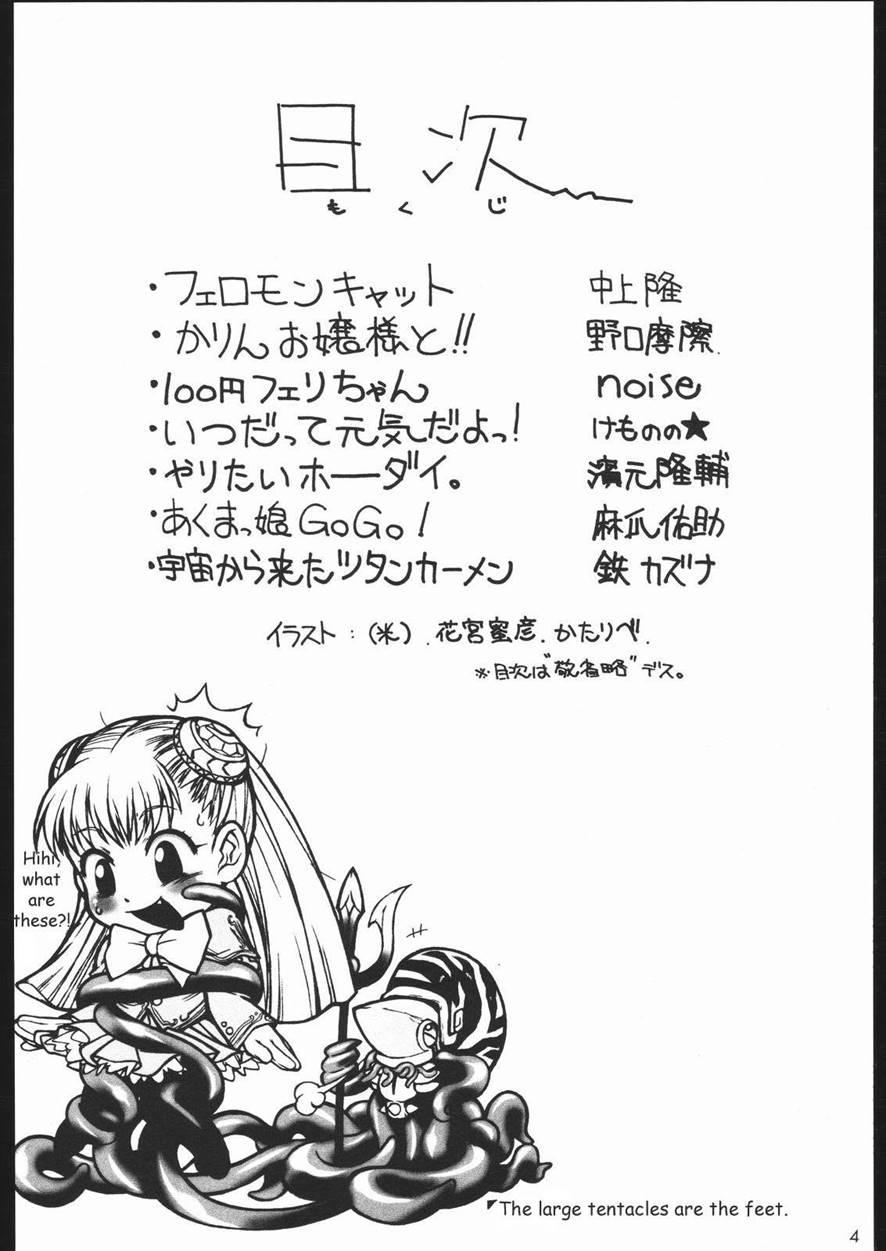 目次
もくじ
・フェロモンキャット 中上隆
・かりんお嬢様と!! 野口摩擦
・100円フェリちゃん noise
・いつだって元気だよっ! けものの★
・やりたいホーダイ。 濱元隆輔
・あくまっ娘GoGo! 麻爪佑助
・宇宙から来たツタンカーメン 鉄カズナ
イラスト:(米).花宮蜜彦.かたりべ.
※目次は"敬省略"デス。
Hihi,
what
are
these?!
The large tentacles are the feet.
4